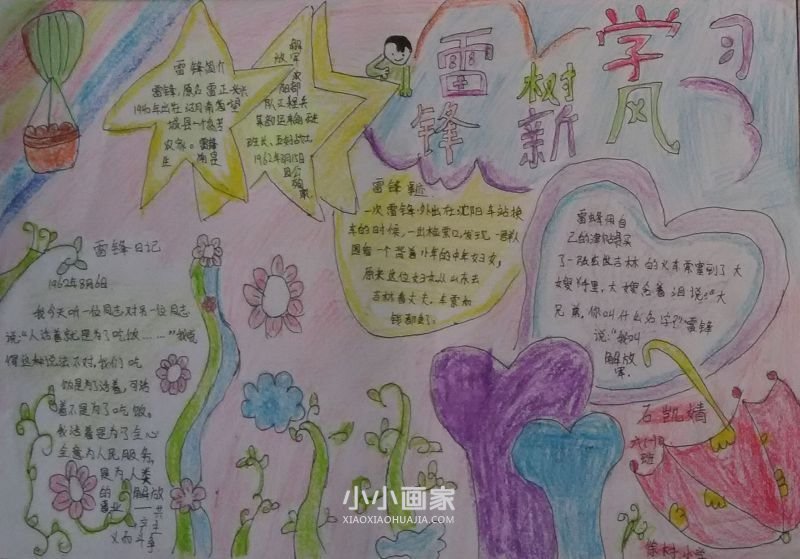 学习
雷锋
树新风
雷锋简介
雷锋,原名雷正兴
1940年出生在湖南省望
城县一个贫苦
农家。雷锋
生前是
解放军
某部
队工程兵
某部运输连
班长、五好战士
1962年8月15日
因公
殉职
雷锋日记
1962年8月6日
我今天听一位同志对另一位同志
说:“人活着就是为了吃饭……”我觉
得这种说法不对,我们吃
饭是为了活着,可活
着不是为了吃饭。
我活着是为了全心
全意为人民服务,
是为人类
的解放
事业—共
产主
义而斗争
雷锋
一次雷锋外出在沈阳车站换
车的时候,一出检票口,发现一群人
围着一个背着小孩的中年妇女,
原来这位妇女从山东去
吉林看丈夫,车票和
钱都丢了。
雷锋用自
己的津贴费买
了一张去吉林的火车票塞到了大
嫂手里,大嫂含着泪说:“大
兄弟,你叫什么名字?”雷锋
说:“我叫
解放
军.
石凯婧
班
小学
小小画家
XIAOXIAOHUAJIA.COM